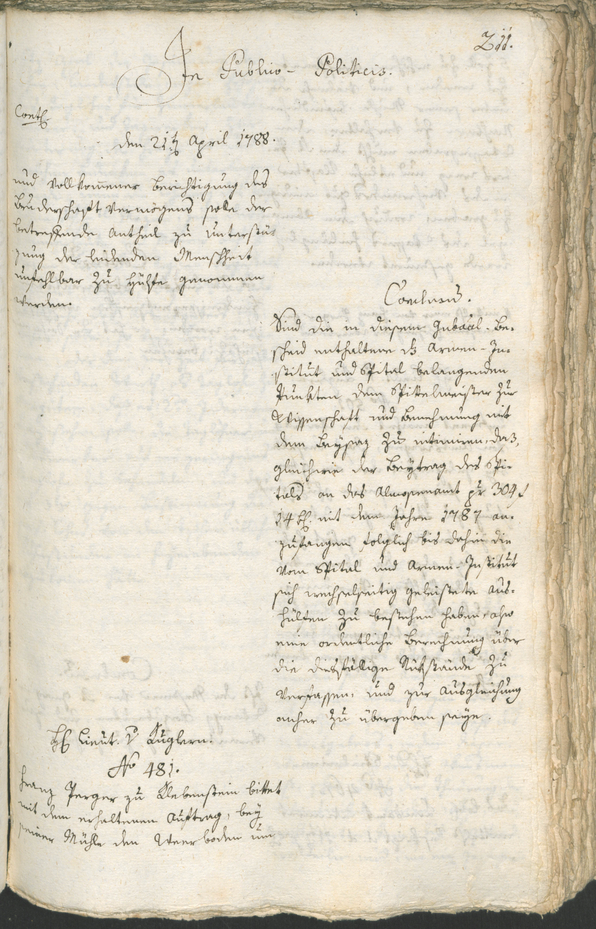 211.
In Publico-Politicis.
Contz.
den 21t April 1788.
und vollkommener Berichtigung des
Bruderschaft Vermögens solle der
betreffende Antheil zu Unterstü-
zung der leidenden Menschheit
unfehlbar zu Hülfe genommen
werden.
Conclusum.
Sind die in diesem Gubâal-Be-
scheid enthaltene ds Armen-In-
stitut und Spital belangenden
Punkten dem Spitelmeister zur
Wissenschaft und Benehmung mit
dem Beysaz zu intimiren, daß,
gleichwie der Beytrag des Spi-
tals an das Almosenamt pr 304 f
14 x mit dem Jahre 1787 an-
zufangen, folglich bis dahin die
vom Spital und Armen-Institut
sich wechselseitig geleistete Aus-
hülfen zu bestehen haben, also
eine ordentliche Berechnung über
die diesfällige Rükstände zu
verfassen, und zur Ausgleichung
anher zu übergeben seye.
H Lieut. v Kuglern.
No 481.
Franz Perger zu Klebenstein bittet
mit dem erhaltenen Auftrag, bey
seiner Mühle den Weerboden um